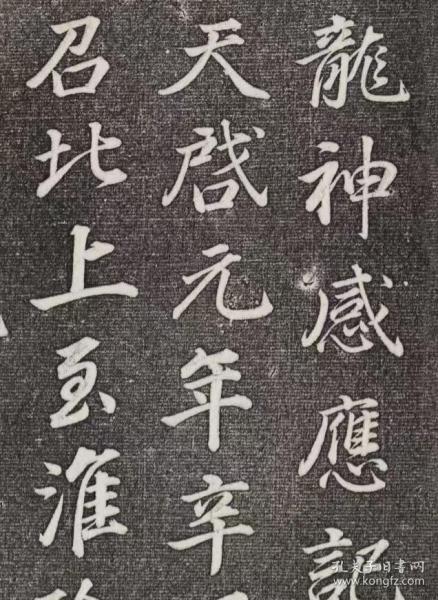 龍神感應記
天啟元年辛
召北上至淮
孔夫子旧书网
kongfz.com